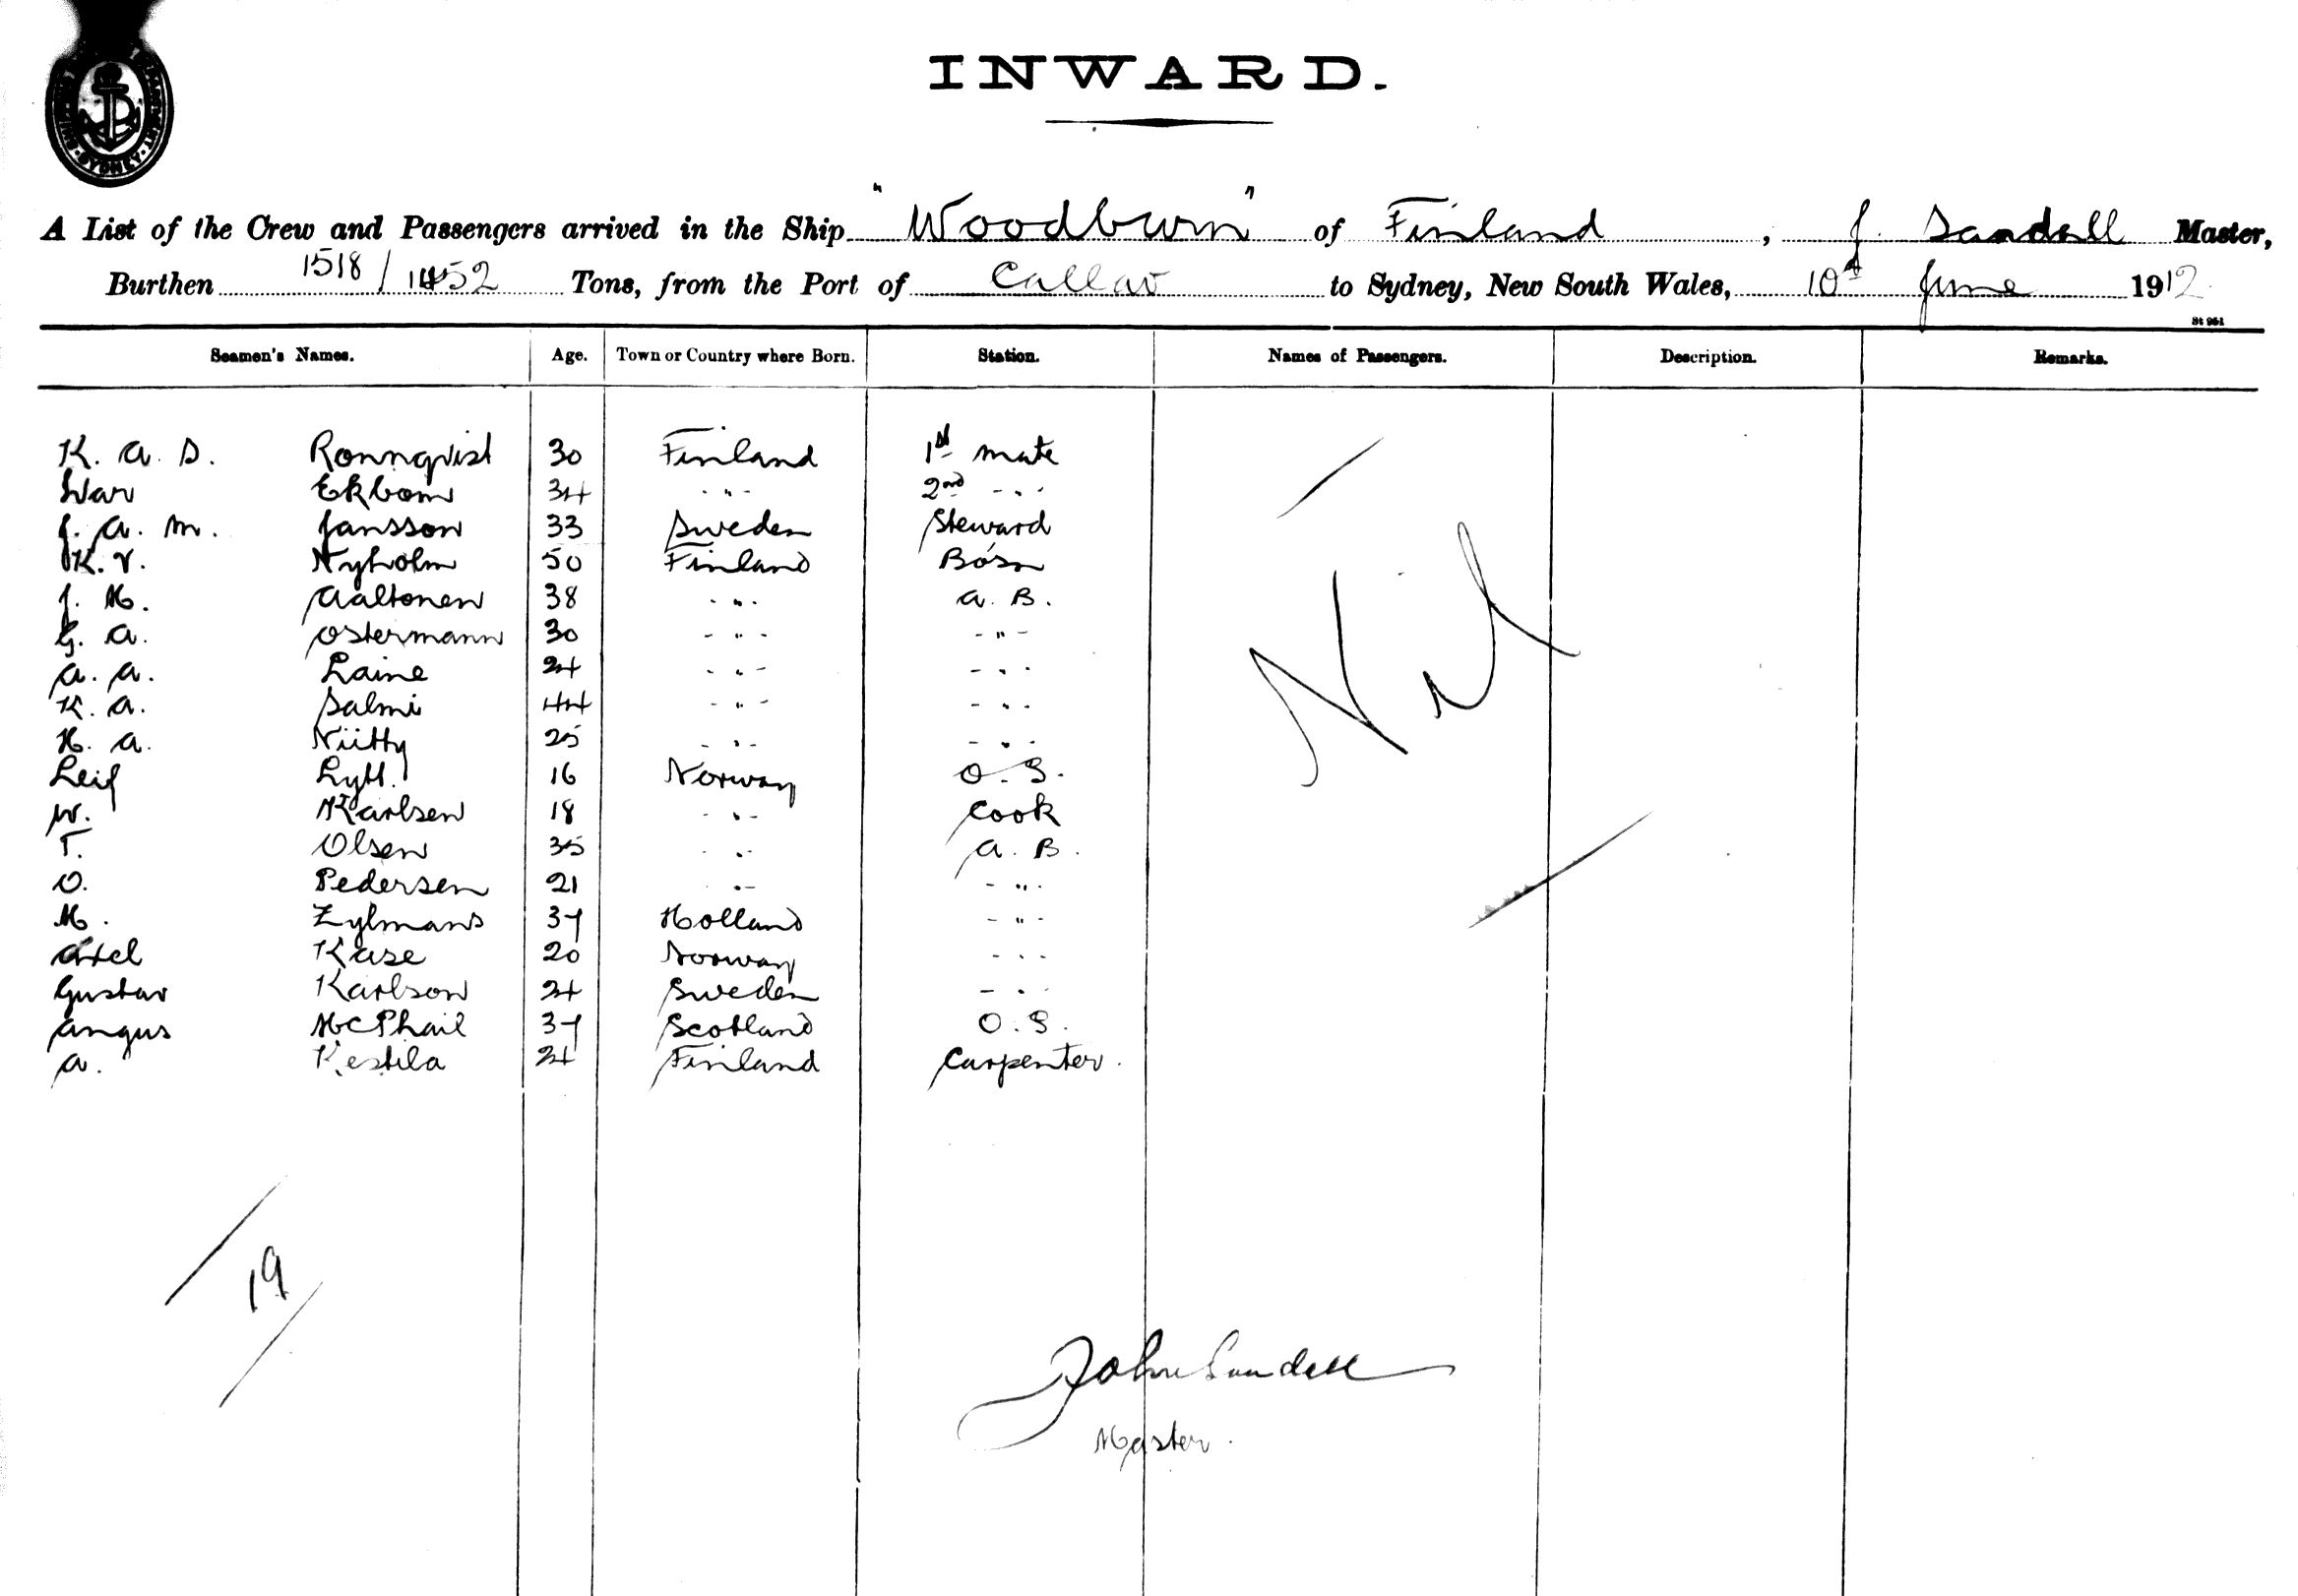 INWARD.
SYDNEY
A List of the Crew and Passengers arrived in the Ship "Woodburn" of Finland, J. Sandell Master,
Burthen 1518/1452 Tons, from the Port of Callao to Sydney, New South Wales, 10th June 1912
St 951
Seamen's Names. Age. Town or Country where Born. Station. Names of Passengers. Description. Remarks.
K. A. S. Ronnqvist 30 Finland 1st Mate
Ivar Ekbom 34 -"- 2nd -"-
J. A. M. Jansson 33 Sweden Steward
K. V. Nyholm 50 Finland Bosn
J. H. Aaltonen 38 -"- A. B.
G. A. Ostermann 30 -"- -"-
A. A. Laine 24 -"- -"-
K. A. Salmi 44 -"- -"-
H. A. Niitty 25 -"- -"-
Nil
Leif 16 Norway O. S.
W. Karlsen 18 -"- Cook
T. Olsen 35 -"- A. B.
O. Pedersen 21 -"- -"-
M. Zylmans 37 Holland -"-
Axel Kase 20 Norway -"-
Gustav Karlson 24 Sweden -"-
Angus McPhail 37 Scotland O. S.
A. Kestila 24 Finland Carpenter.
19
John Sandell
Master.